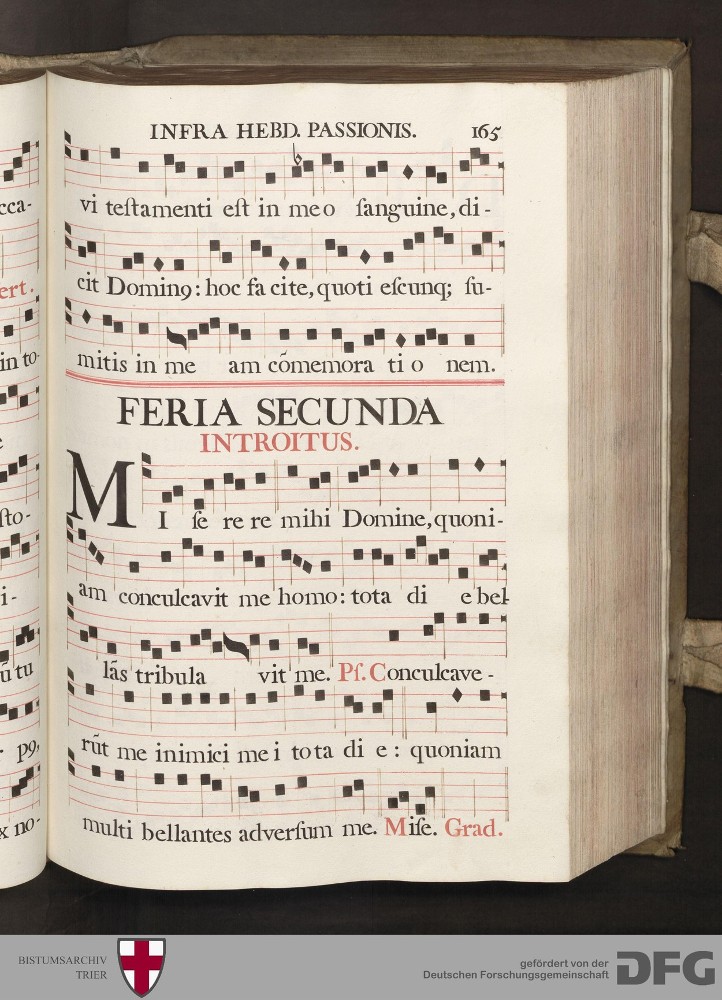 cca-
ert.
in to-
sto-
i-
ũ tu
p9,
x no-
INFRA HEBD. PASSIONIS. 165
vi teſtamenti eſt in meo ſanguine, di-
cit Domin9: hoc fa cite, quoti eſcunq; ſu-
mitis in me am cõmemora ti o nem.
FERIA SECUNDA
INTROITUS.
MI ſe re re mihi Domine, quoni-
am conculcavit me homo: tota di e bel-
lãs tribula vit me. Pſ. Conculcave-
rũt me inimici me i to ta di e: quoniam
multi bellantes adverſum me. Miſe. Grad.
BISTUMSARCHIV
TRIER
gefördert von der
Deutschen Forschungsgemeinschaft
DFG